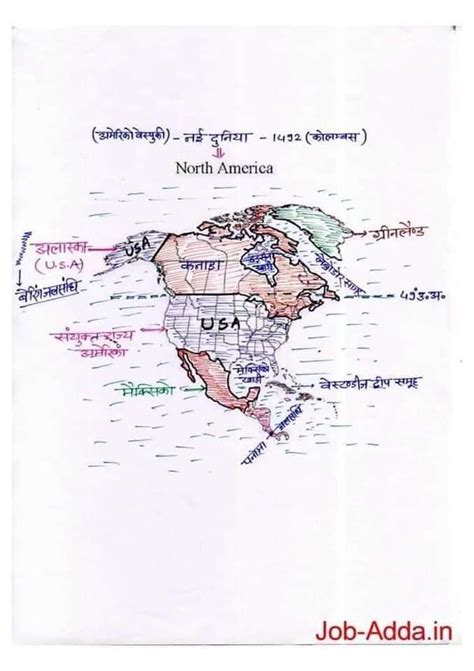 (अमेरिको वेस्पुकी) - नई दुनिया - 1492 (कोलम्बस)
⇓
North America
अलास्का
(U.S.A)
USA
कनाडा
हडसन
खाड़ी
ग्रीनलैण्ड
लेब्रोडोर सागर
बेरिंग जलसंधि
49° उ.अ.
संयुक्त राज्य
अमेरिका
USA
मैक्सिको
खाड़ी
मैक्सिको
वेस्टइंडीज द्वीप समूह
पनामा जलसंधि
Job-Adda.in